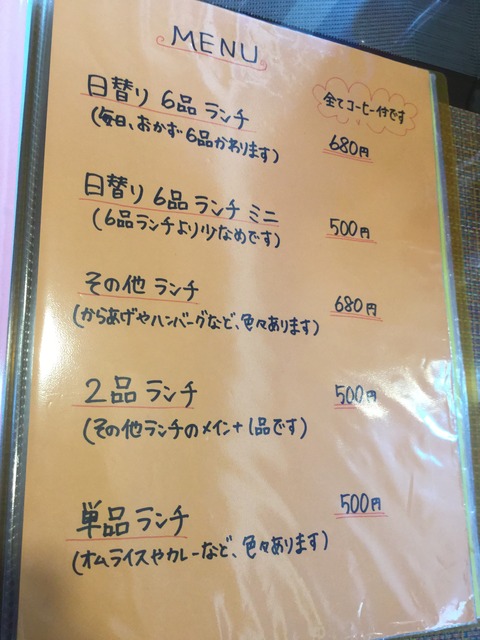 MENU
全てコーヒー付です
日替り 6品 ランチ
(毎日、おかず6品かあります)
680円
日替り 6品 ランチ ミニ
(6品ランチより少なめです)
500円
その他 ランチ
680円
(からあげやハンバーグなど、色々あります)
2品 ランチ
500円
(その他ランチのメイン+1品です)
単品 ランチ
500円
(オムライスやカレーなど、色々あります)